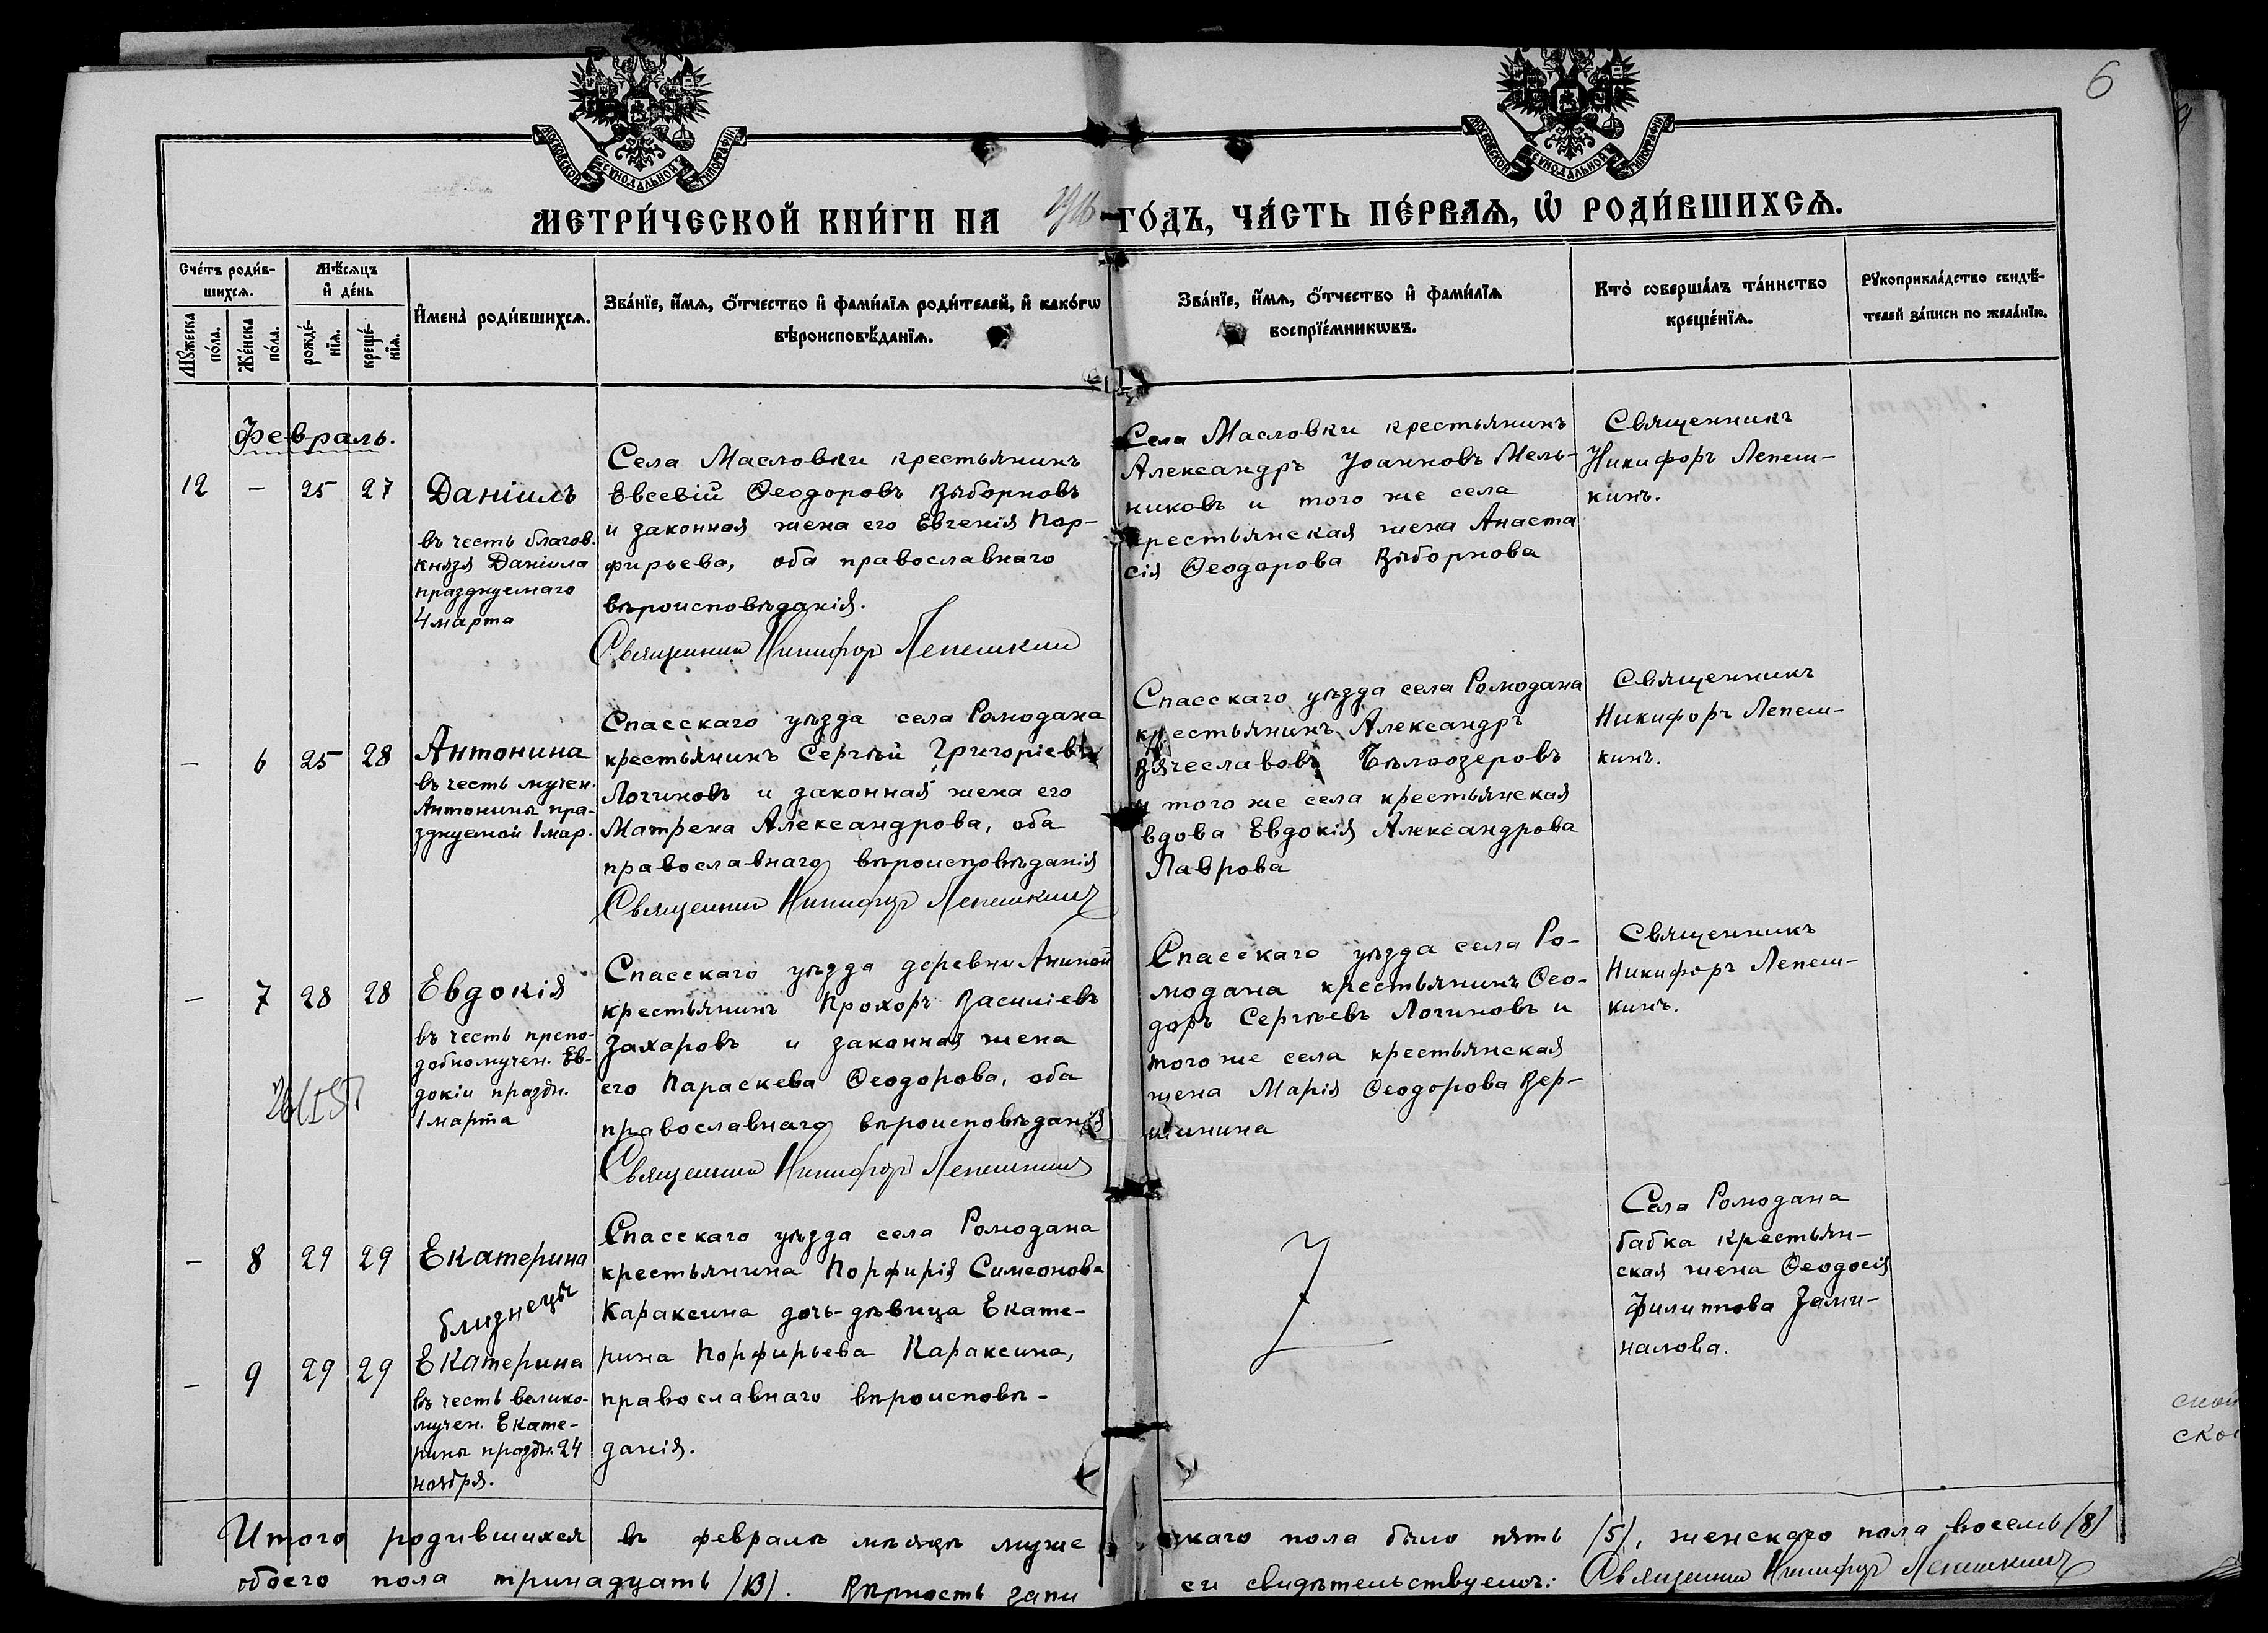 6
МОСКОВСКОЙ СѴНОДАЛЬНОЙ ТИПОГРАФІИ
МОСКОВСКОЙ СѴНОДАЛЬНОЙ ТИПОГРАФІИ
МЕТРИ́ЧЕСКОЙ КНИ́ГИ НА 1916 ГО́ДЪ, ЧА́СТЬ ПЕ́РВАѦ, Ѡ҆ РОДИ́ВШИХСѦ.
Сче́тъ роди́в-
шихсѧ.
Мꙋ́жеска
по́ла.
Же́нска
по́ла.
Мѣ́сѧцъ
и҆ де́нь
рожде́-
нїѧ.
креще́-
нїѧ.
И҆мена̀ роди́вшихсѧ.
Зва́нїе, и҆́мѧ, ѻ҆́тчество и҆ фами́лїѧ роди́телей, и҆ како́гѡ
вѣроисповѣ́данїѧ.
Зва́нїе, и҆́мѧ, ѻ҆́тчество и҆ фами́лїѧ
воспрїе́мникѡвъ.
Кто̀ соверша́лъ та́инство
креще́нїѧ.
Рꙋкоприкла́дство свидѣ́-
телей за́писи по жела́нїю.
Февраль.
12 — 25 27
Даніилъ
въ честь благов.
князя Даніила
празднуемаго
4 марта
Села Масловки крестьянинъ
Евсевій Ѳеодоровъ Выборновъ
и законная жена его Евгенія Пор-
фирьева, оба православнаго
вѣроисповѣданія.
Священник Никифор Лепешкин
Села Масловки крестьянинъ
Александръ Іоанновъ Мель-
никовъ и того же села
крестьянская жена Анаста
сія Ѳеодорова Выборнова
Священникъ
Никифоръ Лепеш-
кинъ.
— 6 25 28
Антонина
въ честь мучен.
Антонины пра-
зднуемой 1 мар.
Спасскаго уѣзда села Ромодана
крестьянинъ Сергѣй Григоріевъ
Логиновъ и законная жена его
Матрена Александрова, оба
православнаго вѣроисповѣданія
Священник Никифор Лепешкинъ
Спасскаго уѣзда села Ромодана
крестьянинъ Александръ
Вячеславовъ Бѣлоозеровъ
и того же села крестьянская
вдова Евдокія Александрова
Лаврова
Священникъ
Никифоръ Лепеш-
кинъ.
— 7 28 28
Евдокія
въ честь препо-
добномучен. Ев-
докіи праздн.
1 марта
Спасскаго уѣзда деревни Аниной
крестьянинъ Прохоръ Василіевъ
Захаровъ и законная жена
его Параскева Ѳеодорова, оба
православнаго вѣроисповѣданія
Священник Никифор Лепешкинъ
Спасскаго уѣзда села Ро-
модана крестьянинъ Ѳео-
доръ Сергѣевъ Логиновъ и
того же села крестьянская
жена Марія Ѳеодорова Вер-
шинина
Священникъ
Никифоръ Лепеш-
кинъ.
— 8 29 29
Екатерина
близнецы
— 9 29 29
Екатерина
въ честь велико-
мучен. Екате-
рины праздн. 24
ноября.
Спасскаго уѣзда села Ромодана
крестьянина Порфирія Симеонова
Караксина дочь-дѣвица Екате-
рина Порфирьева Караксина,
православнаго вѣроисповѣ-
данія.
Села Ромодана
бабка крестьян-
ская жена Ѳеодосія
Филиппова Зами-
налова.
Итого родившихся въ февралѣ мѣсяцѣ муже скаго пола было пять /5/, женскаго пола восемь /8/
обоего пола тринадцать /13/. Вѣрность запи си свидѣтельствуемъ: Священник Никифор Лепешкинъ